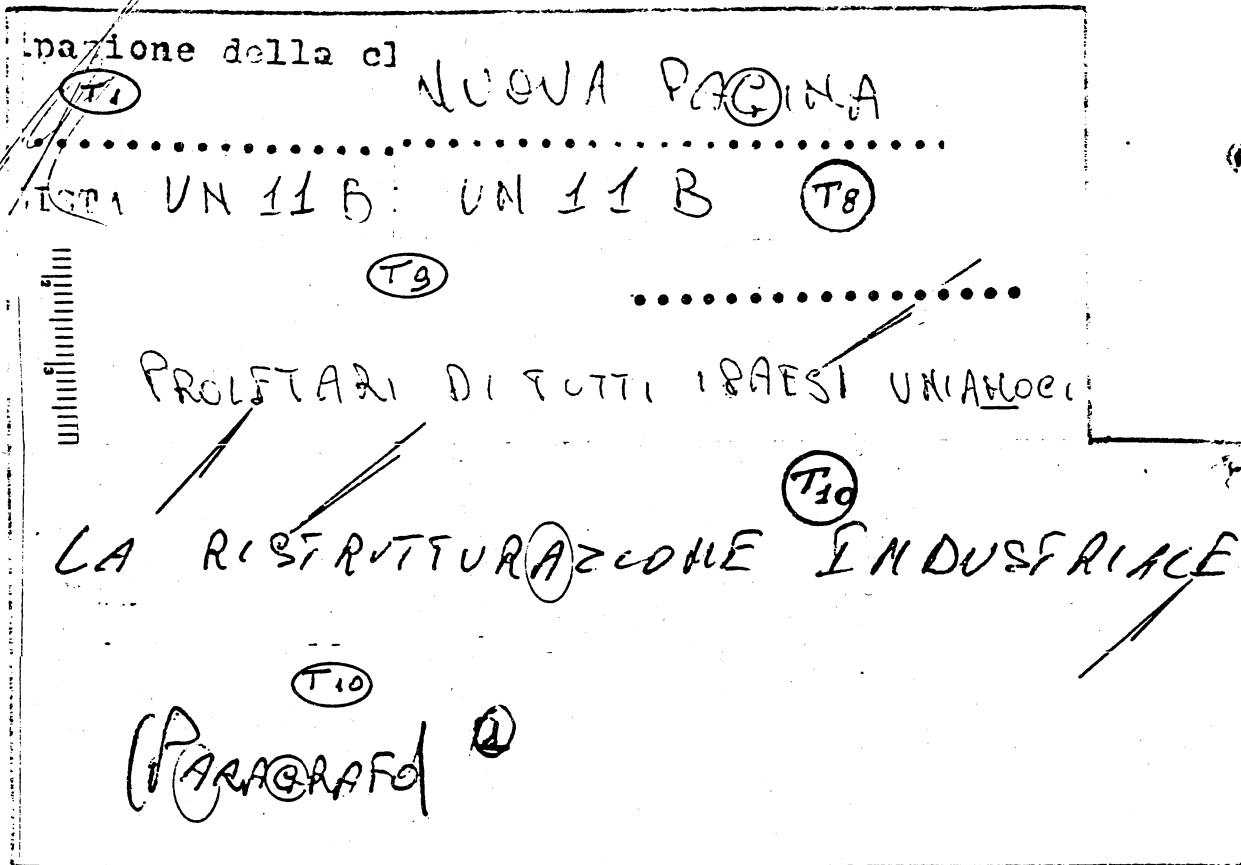 pazione della cl
NUOVA PAGINA
T1
UN 11 B: UN 11 B T8
T9
PROLETARI DI TUTTI I PAESI UNIAMOCI
T10
LA RISTRUTTURAZIONE INDUSTRIALE
T10
(PARAGRAFO) 1